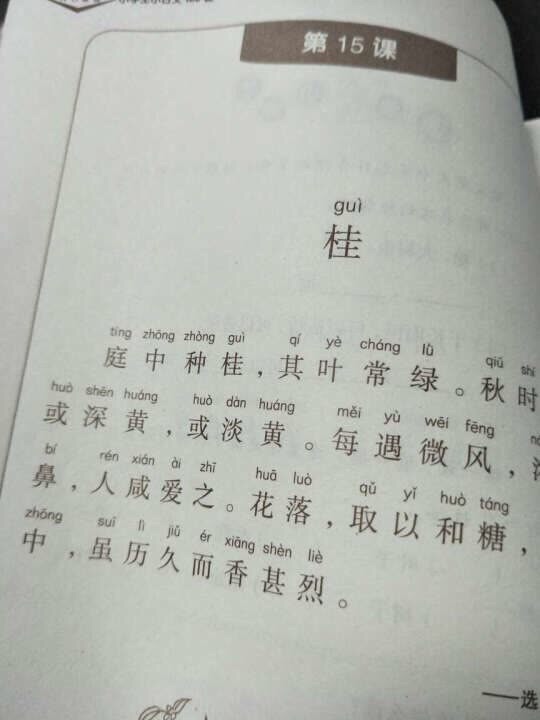 小学生小古文100课
第15课
guì
桂
tíng zhōng zhòng guì qí yè cháng lǜ qiū shí
庭中种桂，其叶常绿。秋时
huò shēn huáng huò dàn huáng měi yù wēi fēng
或深黄，或淡黄。每遇微风，
bí rén xián ài zhī huā luò qǔ yǐ huò táng
鼻，人咸爱之。花落，取以和糖，
zhōng suī lì jiǔ ér xiāng shèn liè
中，虽历久而香甚烈。
——选